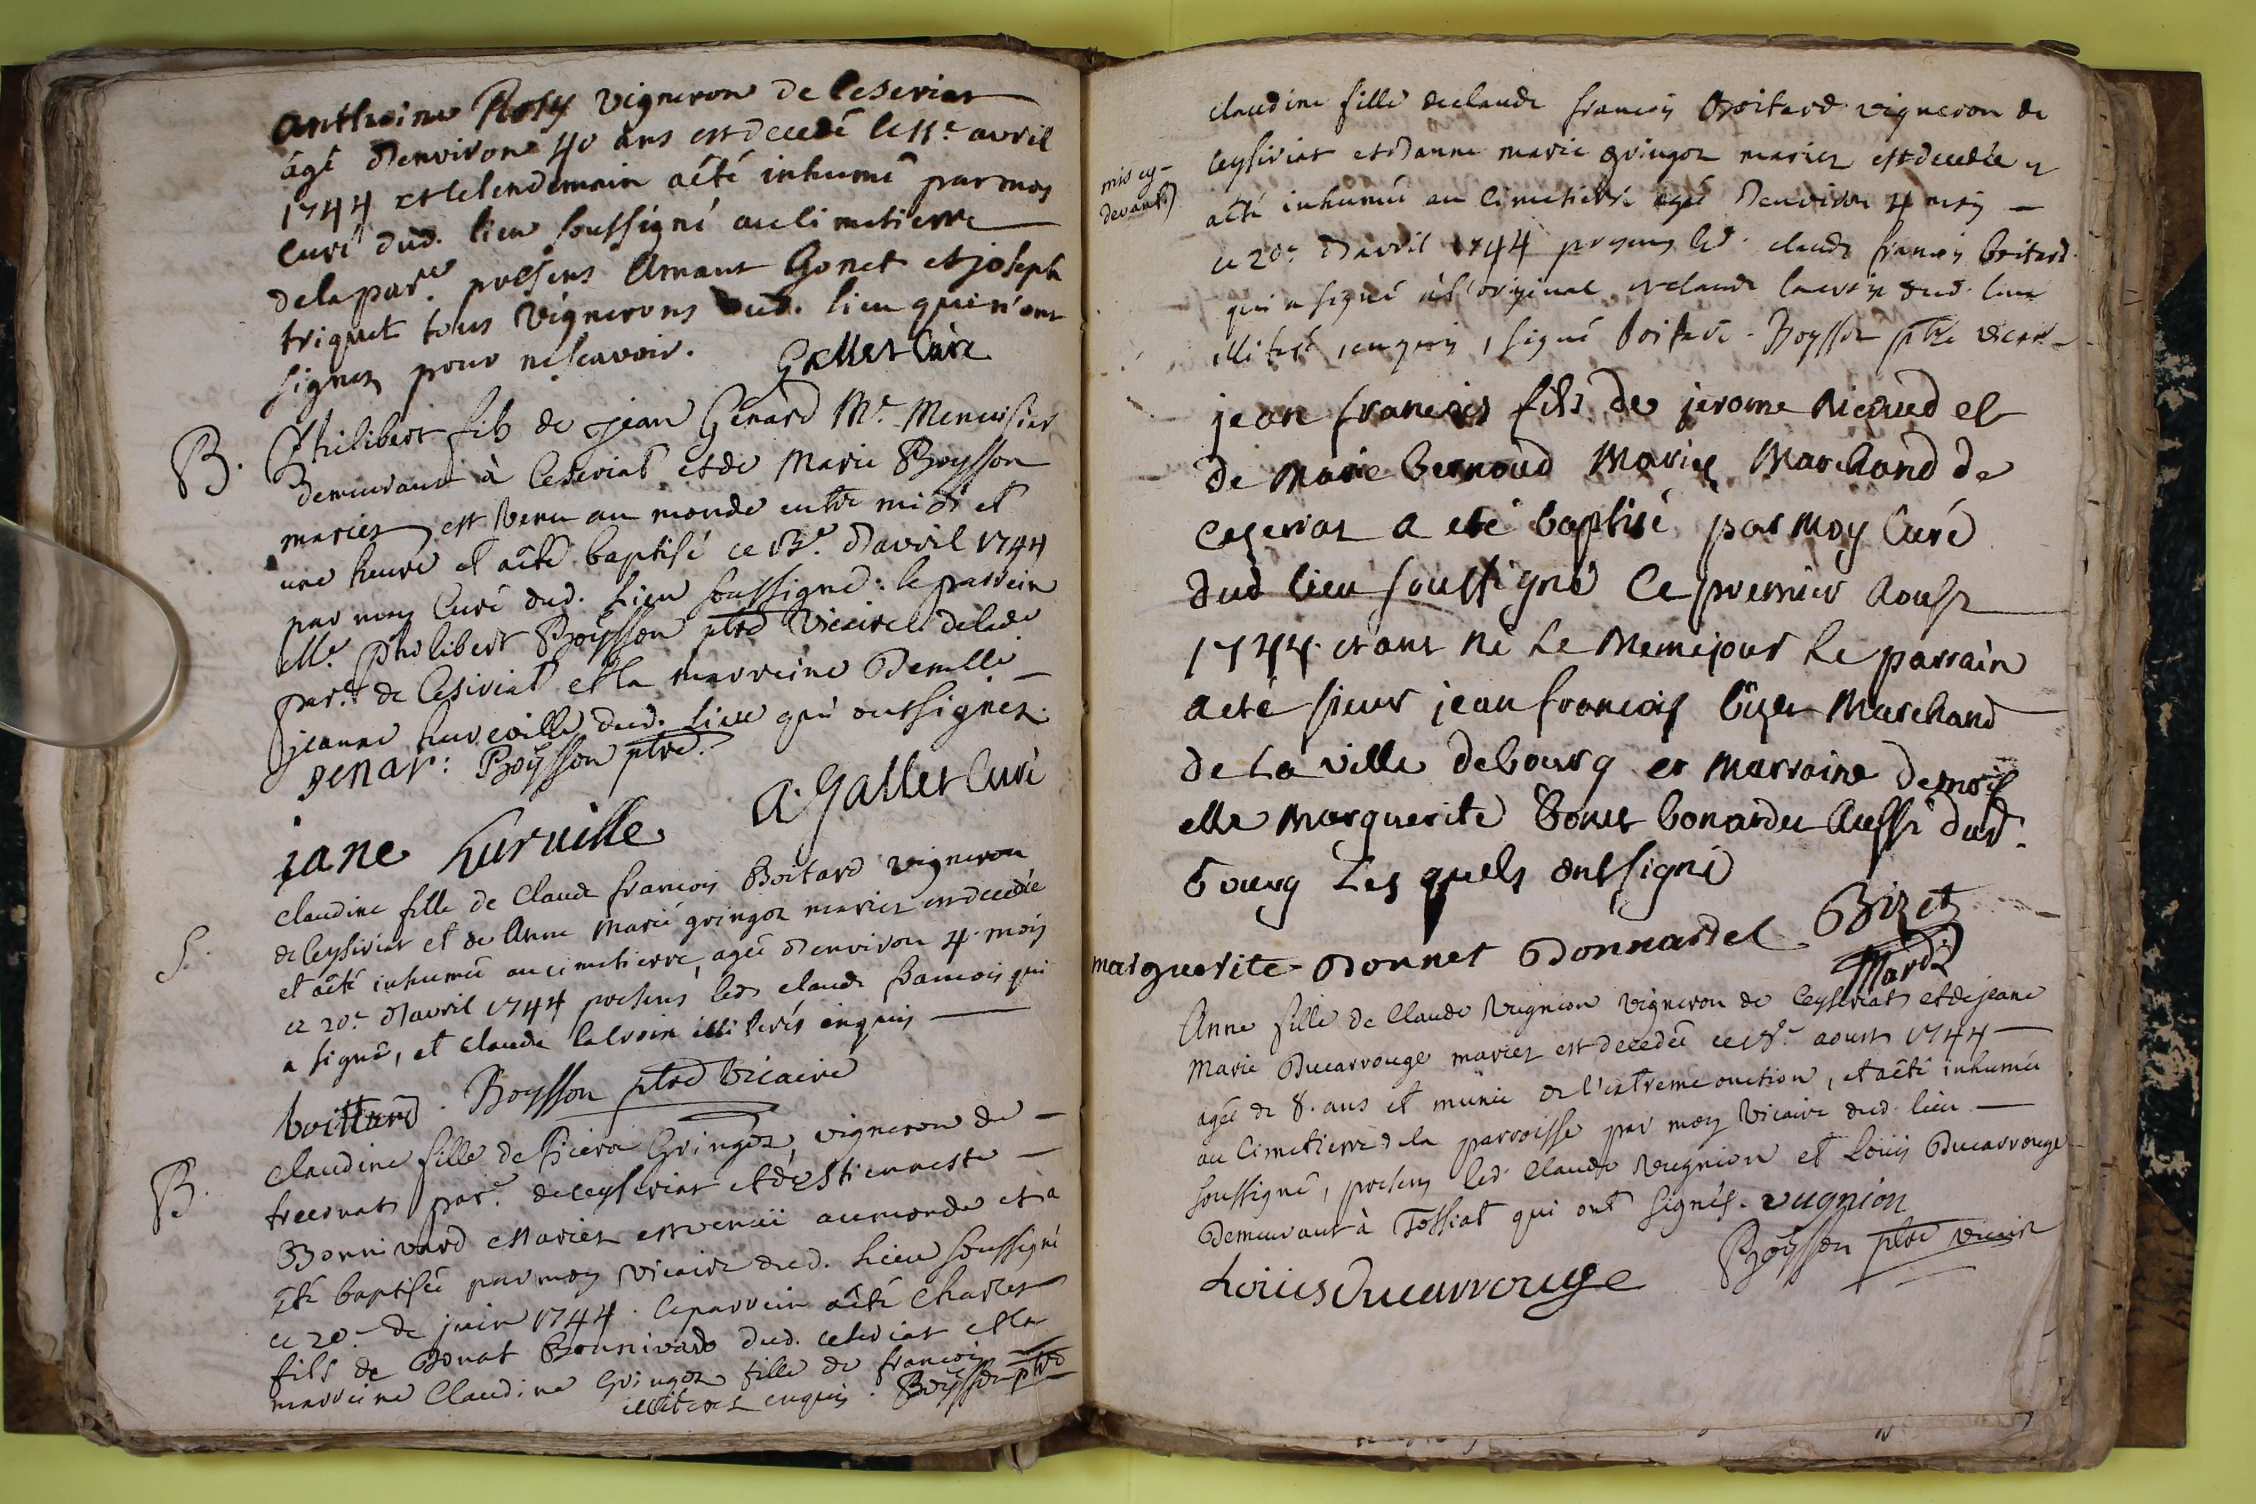 Anthoine Rosy vigneron de Ceseriat
âgé d'environ 40 ans est decedé le 11e avril
1744 et le lendemain a été inhumé par moy
Curé dud. lieu soussigné au cimetierre
de la parce presens Amant Gonet et joseph
triquet tous vignerons dud. lieu qui n'ont
signez pour ne scavoir. Gallet Curé
B. Philibert fils de jean Genard Me Menusier
demeurant à Ceseriat et de Marie Boysson
mariez est venu au monde entre midi et
une heure et a été baptisé ce 13e d'avril 1744
par moy Curé dud. Lieu soussigné: le parrein
Mre Philibert Boysson ptre Vicaire de lade
parce de Ceseriat et la marreine Demlle
jeanne hureville dud. Lieu qui ont signez.
genar: Boysson ptre.
jane hurville A. Gallet Curé
S. claudine fille de Claude francois Boitard vigneron
de Ceyseriat et de Anne Marie gringoz mariez est decedée
et a été inhumée au cimetierre, agée d'environ 4 mois
ce 20e d'avril 1744 presens led. claude francois qui
a signé, et claude lacroix illiteré enquis
boittard. Boysson ptre vicaire
B. claudine fille de Pierre Gringoz, vigneron de
treconas parce de ceyseriat et d'Estiennette
Bonnivard Mariez est venuë au monde et a
été baptisée par moy vicaire dud. Lieu soussigné
ce 20e de juin 1744. le parrein a été Charles
fils de Donat Bonnivard dud. ceseriat et la
marreine Claudine Gringoz fille de francois
illiterez enquis. Boysson ptre
mis cy-
devant)
claudine fille de claude francois Boitard vigneron de
Ceysiriat et d'anne marie gringoz mariez est decedée et
a été inhumée au cimetierre agée d'environ 4 mois
ce 20e d'avril 1744 presens led. claude francois boitard
qui a signé à l'original et claude lacroix dud. lieu
illiteré, enquis, signé boitard. Boysson ptre vicaire
jean francois fils de jerome Nicoud et
de Marie bernoud Mariez Marchand de
Ceseriat a eté baptisé par moy Curé
dud lieu soussigné le premier Aoust
1744. etant né Le Meme jour Le parrain
a eté sieur jean francois bizet Marchand
de La ville de bourg et Marraine demois
elle Marguerite bonet bonardet Aussi dud.
bourg Les quels ont signé
marguerite Bonnet Bonnardel Bizet
Mard
Anne fille de Claude Vugnion vigneron de Ceyseriat et de jeane
Marie Ducarrouge mariez est decedée ce 18e aoust 1744
agée de 8. ans et munie de l'extreme onction, et a été inhumée
au Cimetierre de la parroisse par moy vicaire dud. lieu
soussigné, presens led. Claude Vugnion et Loüis Ducarrouge
demeurant à Tossiat qui ont signés. vugnion
Boysson ptre vicaire
Loüis Ducarrouge